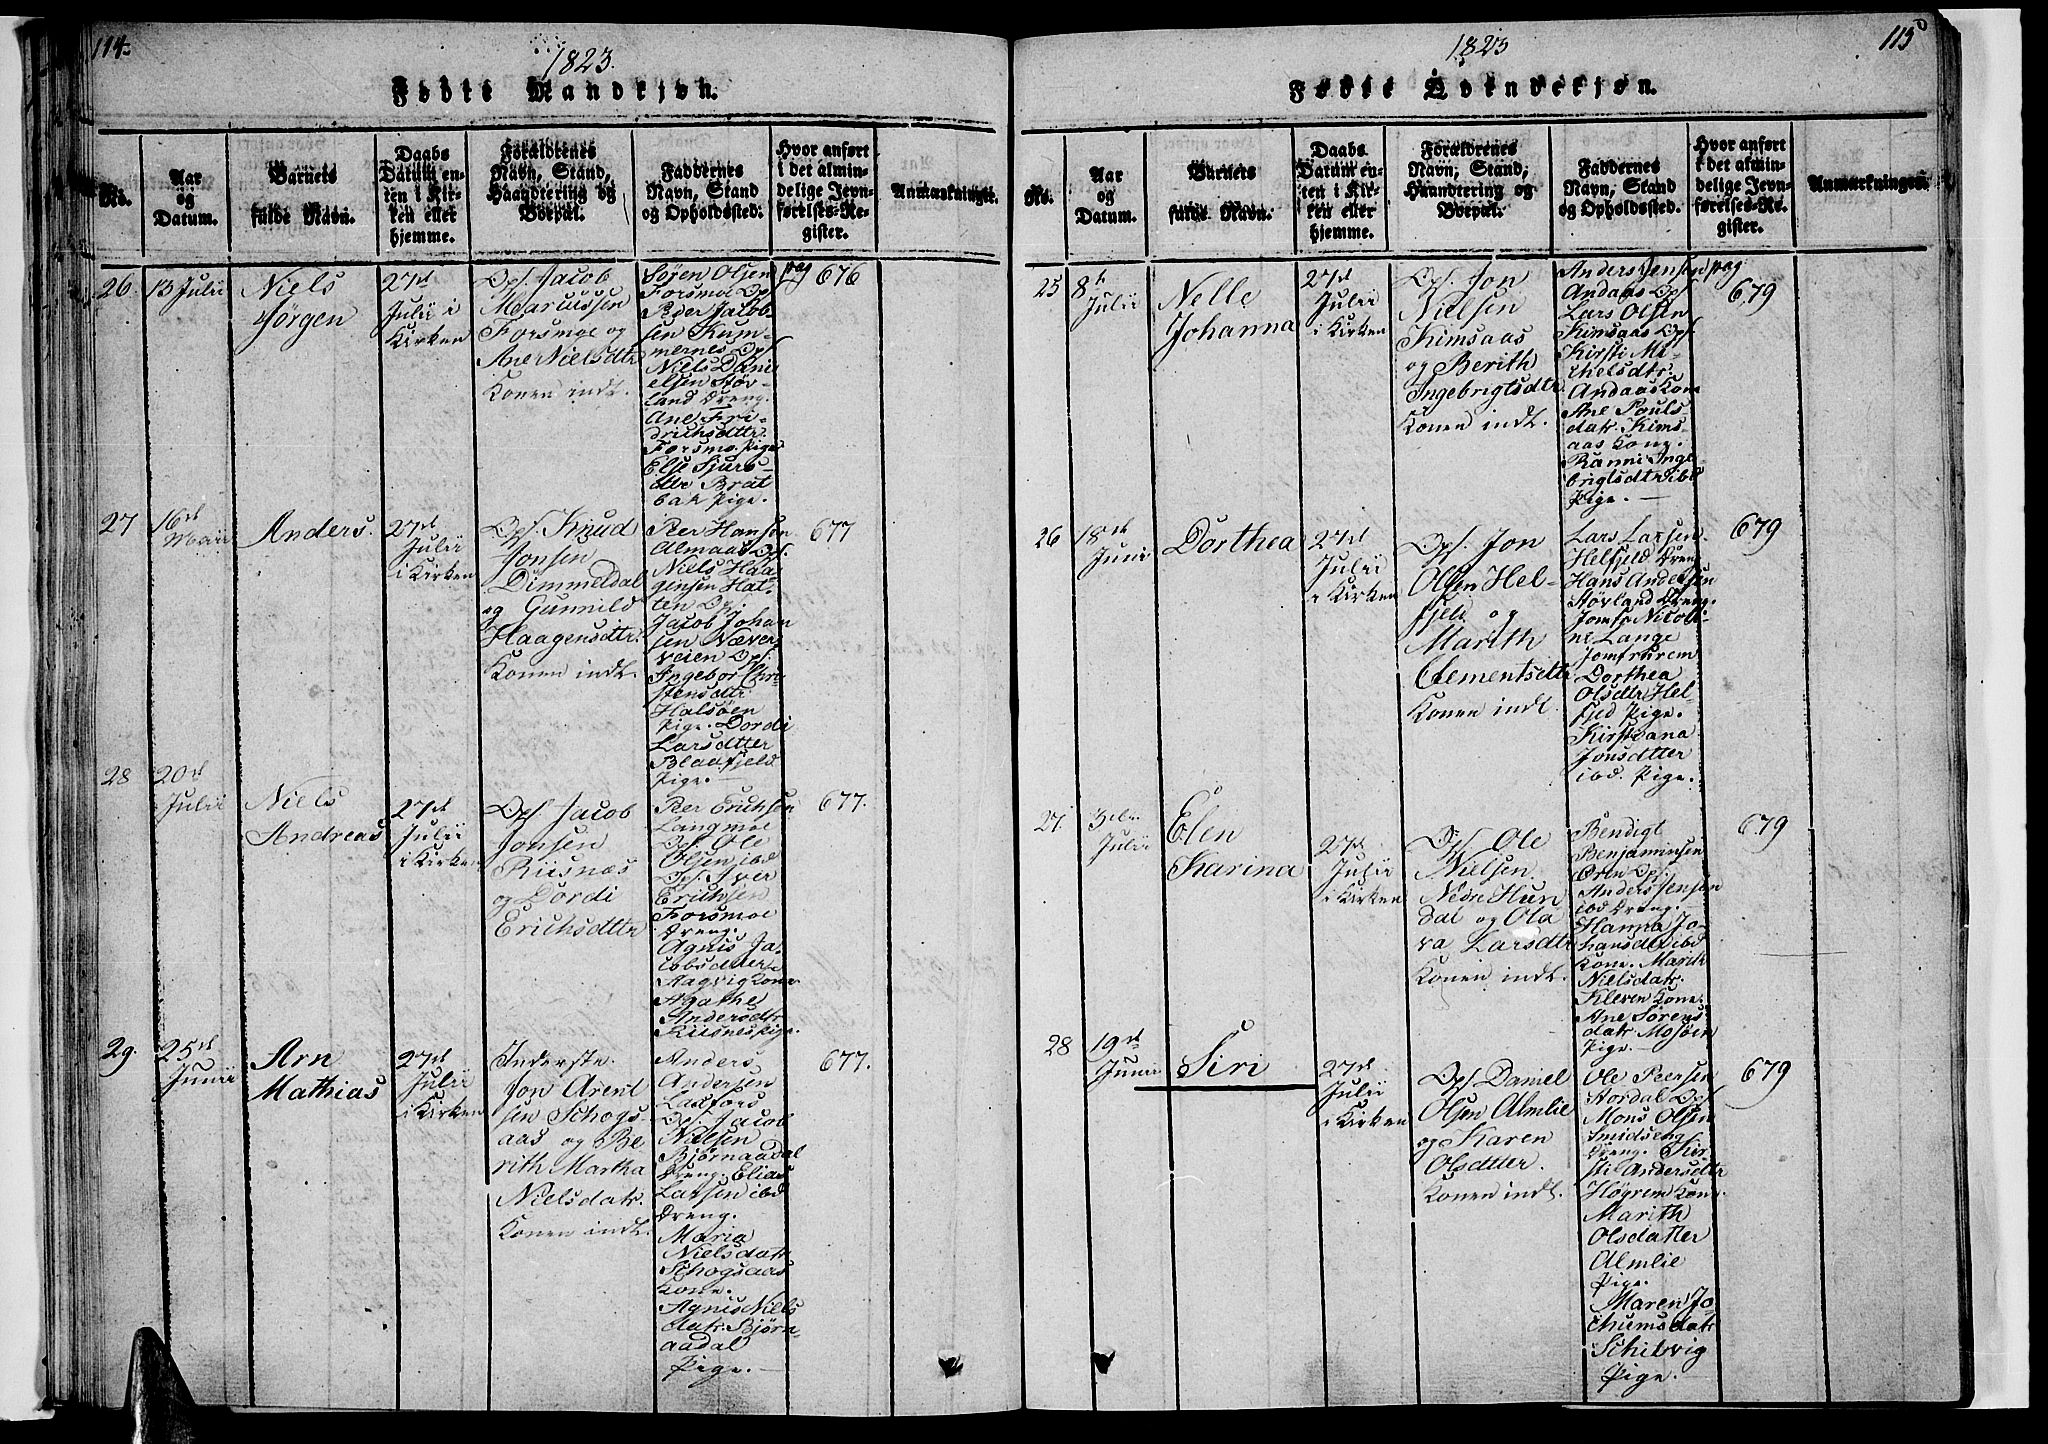 114.
1823.
Fødte Mandkjøn.
No.
Aar
og
Datum.
Barnets
fulde Navn.
Daabs
Datum en-
ten i Kir-
ken eller
hjemme.
Forældrenes
Navn, Stand,
Haandtering og
Boepæl.
Faddernes
Navn, Stand
og Opholdssted.
Hvor anført
i det almin-
delige Jevn-
førelses-Re-
gister.
Anmærkninger.
26
13 Julii
Niels
Jörgen
27d
Julii i
Kirken
Ops. Jacob
Marcussen
Forsmoe og
Ane Nielsdtr
Konen indt.
Sören Olsen
Forsmoe Op
Peder Jacob-
sen Kum-
mernes Ops
Niels Dani
elsen Stöv-
land Dreng.
Ane Fri-
drichsdtter
Forsmo Pige
Else Sjurs-
dtr Brat
bak Pige.
pag 676
27
16d
Maii
Anders.
27d
Julii
i Kirken
Ops. Knud
Jonsen
Dimmeldal
og Gunnild
Haagensdtr.
Konen indt.
Peer Hansen
Almaas Ops.
Niels Haa
gensen Hat-
ten Op.
Jacob Johan
sen Næver
veien Ops.
Ingebor Chri-
stensdtr
Halsöen
Pige. Dordi
Larsdtter
Blaafjeld
Pige.
677
28
20d
Julii
Niels
Andreas
27d
Julii
i Kirken
Ops Jacob
Jonsen
Riisnæs
og Dordi
Erichsdtter
Peer Erichsen
Langmoe
Ops. Ole
Olsen ibd
Ops. Iver
Erichsen
Forsmoe
Dreng.
Agnis Ja-
cobsdtter
Aagvig Kone
Agathe
Andersdtr
Riisnes Pige.
677.
29.
25d
Junii
Arn
Mathias
27d
Julii
i Kirken
Inderste
Jon Arent
sen Schogs-
aas og Be
rith Martha
Nielsdatr.
Konen indt.
Anders
Andersen
Laxfors
Ops. Jacob
Nielsen
Björnaadal
Dreng. Elias
Larsen ibd
Dreng.
Maria
Nielsdatr
Schogsaas
Kone.
Agnis Niels
datr. Björn-
aadal
Pige.
677.
115
1823
Fødte Qvindekjøn.
No.
Aar
og
Datum.
Barnets
fulde Navn.
Daabs
Datum en-
ten i Kir-
ken eller
hjemme.
Forældrenes
Navn, Stand,
Haandtering og
Boepæl.
Faddernes
Navn, Stand
og Opholdssted.
Hvor anført
i det almin-
delige Jevn-
førelses-Re-
gister.
Anmærkninger.
25
8d
Julii
Nelle
Johanna
27d
Julii
i Kirken
Ops. Jon
Nielsen
Kimsaas
og Berith
Ingebrigtsdtr.
Konen indt.
Anders Jensen
Andaas Op
Lars Olsen
Kimsaas Ops
Kirsti Mi-
chelsdtr.
Andaas Kone
Ane Pouls-
datr. Kims-
aas Kone.
Ranni Inge
brigtsdtr ibd
Pige.
pag.
679
26
18d
Juni
Dorthea
27d
Julii
i Kirken
Ops. Jon
Olsen Hel-
fjeld og
Marith
Clementsdtr
Konen indt.
Lars Larsen
Helfjeld Dreng
Hans Andersen
Stövland Dreng.
Jomfr Nicoli-
ne Lange
Jomfrurem
Dorthea
Olsdtr Hel-
fjeld Pige.
Kirstiana
Jonsdtter
ibd. Pige.
679
27.
Julii
Elen
Karina
27d
Julii
i Kirken
Ops. Ole
Nielsen
Nedre Hun
dal og Ola
va Larsdtr
Konen indt.
Bendigt
Benjaminsen
Øren Ops.
Anders Jensen
ibd Dreng.
Hanna Jo-
hansdtr ibd
Kone. Marith
Nielsdatr.
Kleven Kone.
Ane Sörens
datr Mosöen
Pige.
679
28
19d
Junii
Siri
27d
Julii
i Kirken
Ops. Daniel
Olsen Almlie
og Karen
Olsdtter.
Konen indt.
Ole Peersen
Stordal Ops
Mons Olsen
Smidseng
Dreng. Kir-
sti Andersdtr
Högrem Kone.
Marith
Olsdatter
Almlie
Pige.
Maren Jo-
chumsdatr
Schilvig
Pige.
679